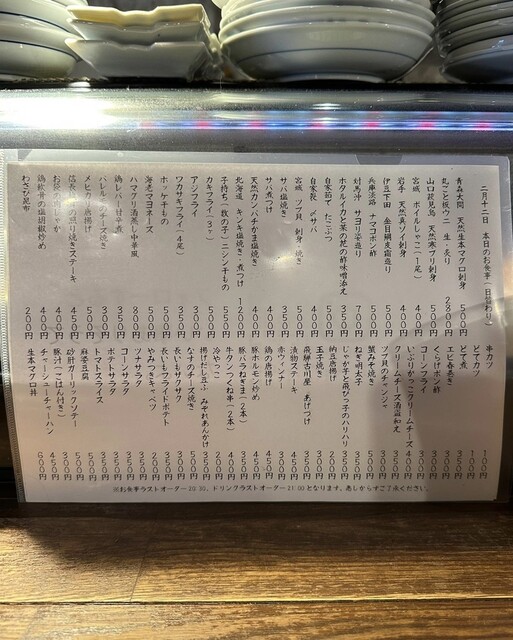 二月十二日 本日のお食事(日替わり)
青森大間 天然生本マグロ刺身 500円
丸ごと板ウニ 生・炙り 2800円
山口萩見島 天然寒ブリ刺身 500円
宮城 ボイルしゃこ(1尾) 400円
岩手 天然真ゾイ刺身 400円
伊豆下田 金目鯛皮霜造り 500円
兵庫淡路 ナマコポン酢 500円
対馬沖 サヨリ姿造り 700円
ホタルイカと菜の花の酢味噌添え 350円
自家茹で たこぶつ 500円
自家製 〆サバ 400円
宮城 ツブ貝 刺身・焼き 500円
サバ塩焼き 350円
サバ煮つけ 400円
天然カンパチかま塩焼き 400円
北海道 キンキ塩焼き・煮つけ 1200円
子持ち ニシン干もの 500円
カキフライ(3ヶ) 500円
アジフライ 350円
ワカサギフライ(4尾) 400円
ホッケ干もの 550円
海老マヨネーズ 500円
ハマグリ酒蒸し中華風 800円
鶏レバー甘辛煮 350円
チーズ焼き
メヒカリ唐揚げ 500円
照り焼きステーキ 450円
肉じゃが 400円
鶏軟骨の塩胡椒炒め 400円
わさび昆布 200円
串カツ 100円
どてカツ 100円
どて煮 350円
エビ春巻き
くらげポン酢
コーンフライ
いぶりがっこクリームチーズ 400円
クリームチーズ酒盗和え
ツブ貝のチャンジャ
蟹みそ焼き 500円
ねぎ明太子 300円
じゃが芋と飛びっ子のハリハリ 350円
納豆唐揚げ
玉子焼き
飛騨古川屋 あげづけ
漬物ステーキ
赤ウィンナー
鶏の唐揚げ
豚ホルモン炒め
豚バラねぎま(2本)
牛タンつくね串(2本) 400円
冷やっこ 200円
揚げだし豆ふ みぞれあんかけ 350円
なすのチーズ焼き 500円
長いもサクサク
長いもフライドポテト
やみつきキャベツ
ツナサラダ
コーンサラダ
ポテトサラダ
トマトスライス
麻婆豆腐 500円
砂肝ガーリックソテー
豚汁(ごはん付き)
チャーシューチャーハン
生本マグロ丼 600円
※お食事ラストオーダー20:30、ドリンクラストオーダー21:00となります。悪しからずご了承ください。